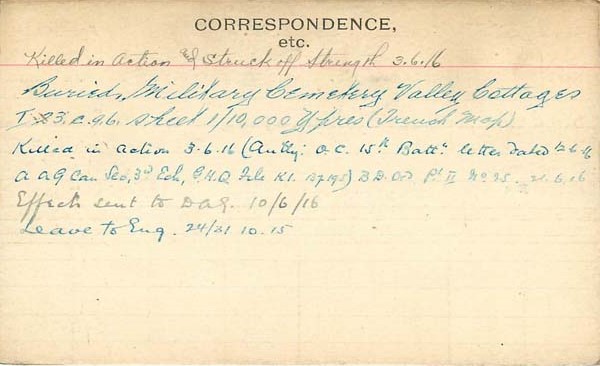 CORRESPONDENCE,
etc.
Killed in action and Struck off Strength 3.6.16
Buried, Military Cemetery Valley Cottages
I 23.c.9.6. sheet 1/10,000 Ypres (Trench Map)
Killed in action 3.6.16 (Auth'y: O.C. 15th Batt'n letter dated
A A G Can Sec, 3rd Ech, G.H.Q. File K1. B.D.O.D Pt II No 25. 21.6.16
Effects sent to DAG. 10/6/16
Leave to Eng. 24/31 10.15